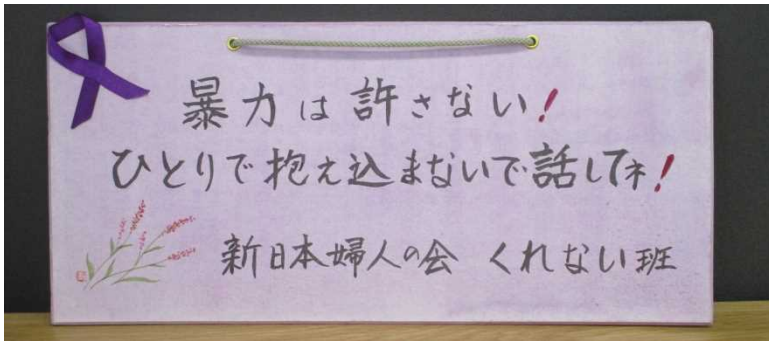 暴力は許さない!
ひとりで抱え込まないで話してネ!
新日本婦人の会 くれない班